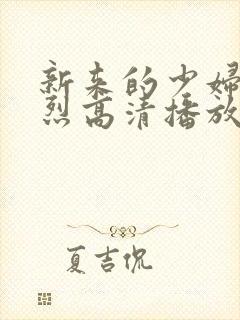 新来的少妇
烈高清播放
夏吉侃